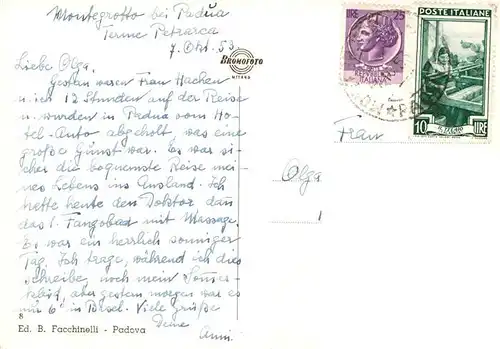 Montegrotto bei Padua
Terme Petrarca
7. Okt. 53
Liebe Olga,
Gestern waren Frau Hachen
u. ich 12 Stunden auf der Reise
u. wurden in Padua vom Ho-
tel-Auto abgeholt, was eine
große Gunst war. Es war si-
cher die bequemste Reise mei-
nes Lebens ins Ausland. Ich
hatte heute den Doktor dann
das 1. Fangobad mit Massage.
Es war ein herrlich sonniger
Tag. Ich trage, während ich dies
schreibe, noch mein Sommer-
kleid, aber gestern morgen war es
nur 6° in Basel. Viele Grüße
Deine
Anni
8
Ed. B. Facchinelli - Padova
BROMOFOTO
MILANO
LIRE 25
POSTE ITALIANE
10 LIRE
IL TELAIO
Frau
Olga